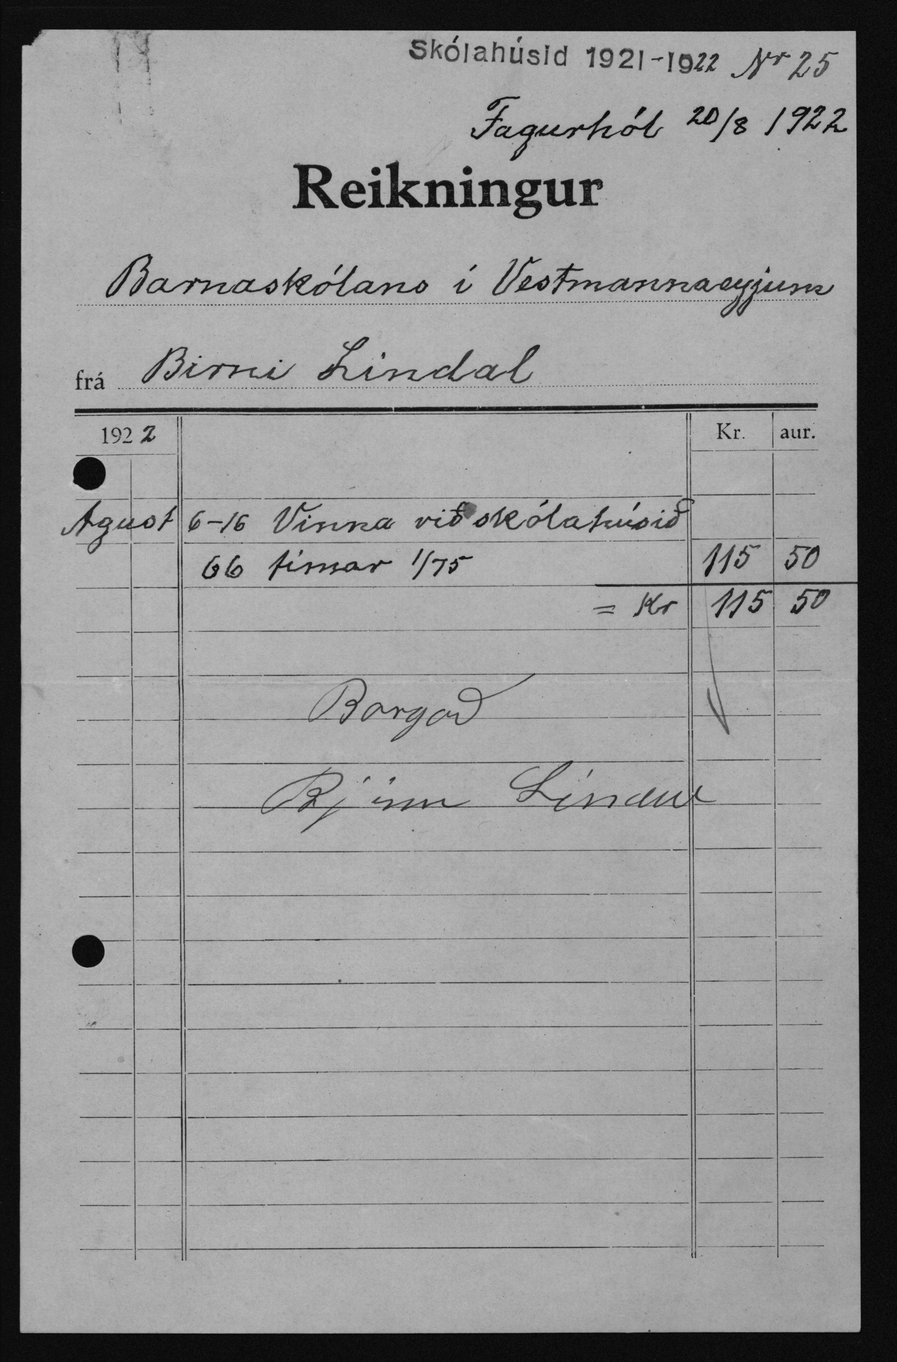 Skólahúsid 1921-1922 Nr 25
Fagurhól 20/8 1922
Reikningur
Barnaskólans í Vestmannaeyjum
frá Birni Lindal
1922 Kr. aur.
Agust 6-16 Vinna við skólahúsið
66 tímar 1/75 115 50
= Kr 115 50
Borgað
Björn Lindal